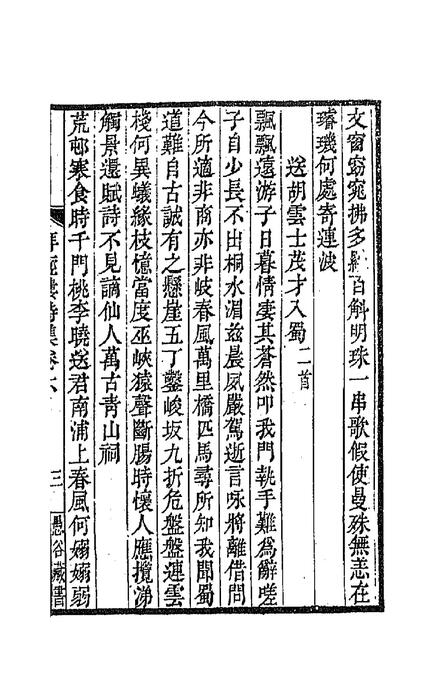 文窗窈窕拂多羅百斛明珠一串歌假使曼殊無恙在
璿璣何處寄連波
送胡雲士茂才入蜀 二首
飄飄遠游子日暮情淒其蒼然叩我門執手難爲辭嗟
子自少長不出桐水湄茲晨夙嚴駕逝言咏將離借問
今所適非商亦非岐春風萬里橋匹馬尋所知我聞蜀
道難自古誠有之懸崖五丁鑿峻坂九折危盤盤連雲
棧何異蟻緣枝憶當度巫峽猿聲斷腸時懷人應攬涕
觸景還賦詩不見謫仙人萬古青山祠
荒邨寒食時千門桃李曉送君南浦上春風何嫋嫋弱
三 愚谷藏書